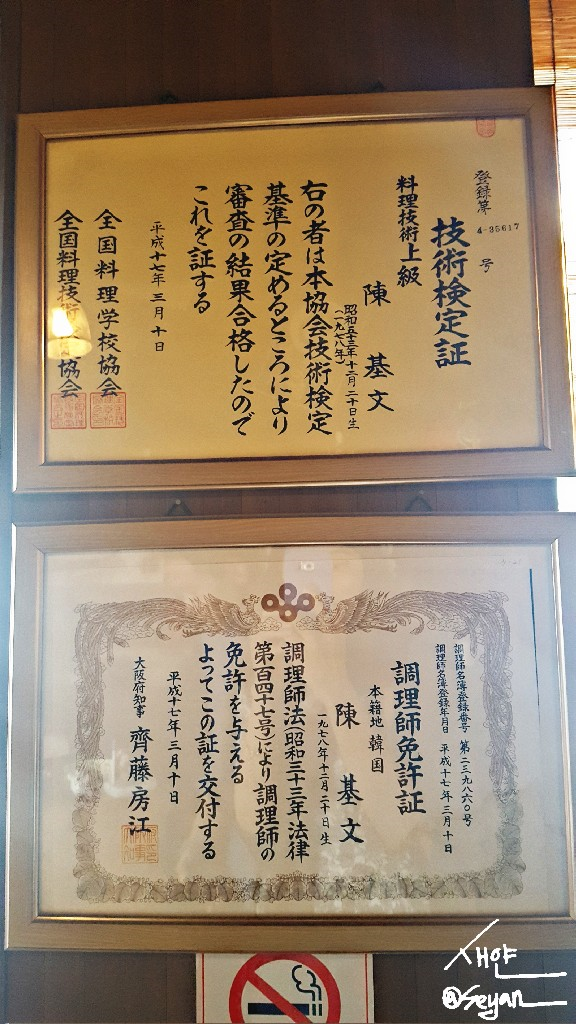 登録第 4-35617 号
技術検定証
料理技術上級
陳 基文
昭和五十三年十二月二十日生
(一九七八年)
右の者は本協会技術検定
基準の定めるところにより
審査の結果合格したので
これを証する
平成十七年三月十日
全国料理学校協会
全国料理技術協会
調理師名簿登録番号 第二三九八六〇号
調理師名簿登録年月日 平成十七年三月十日
調理師免許証
本籍地 韓国
陳 基文
一九七八年十二月二十日生
調理師法(昭和三十三年法律
第百四十七号)により調理師の
免許を与える
よってこの証を交付する
平成十七年三月十日
大阪府知事 齊藤房江
새얀
@Seyan